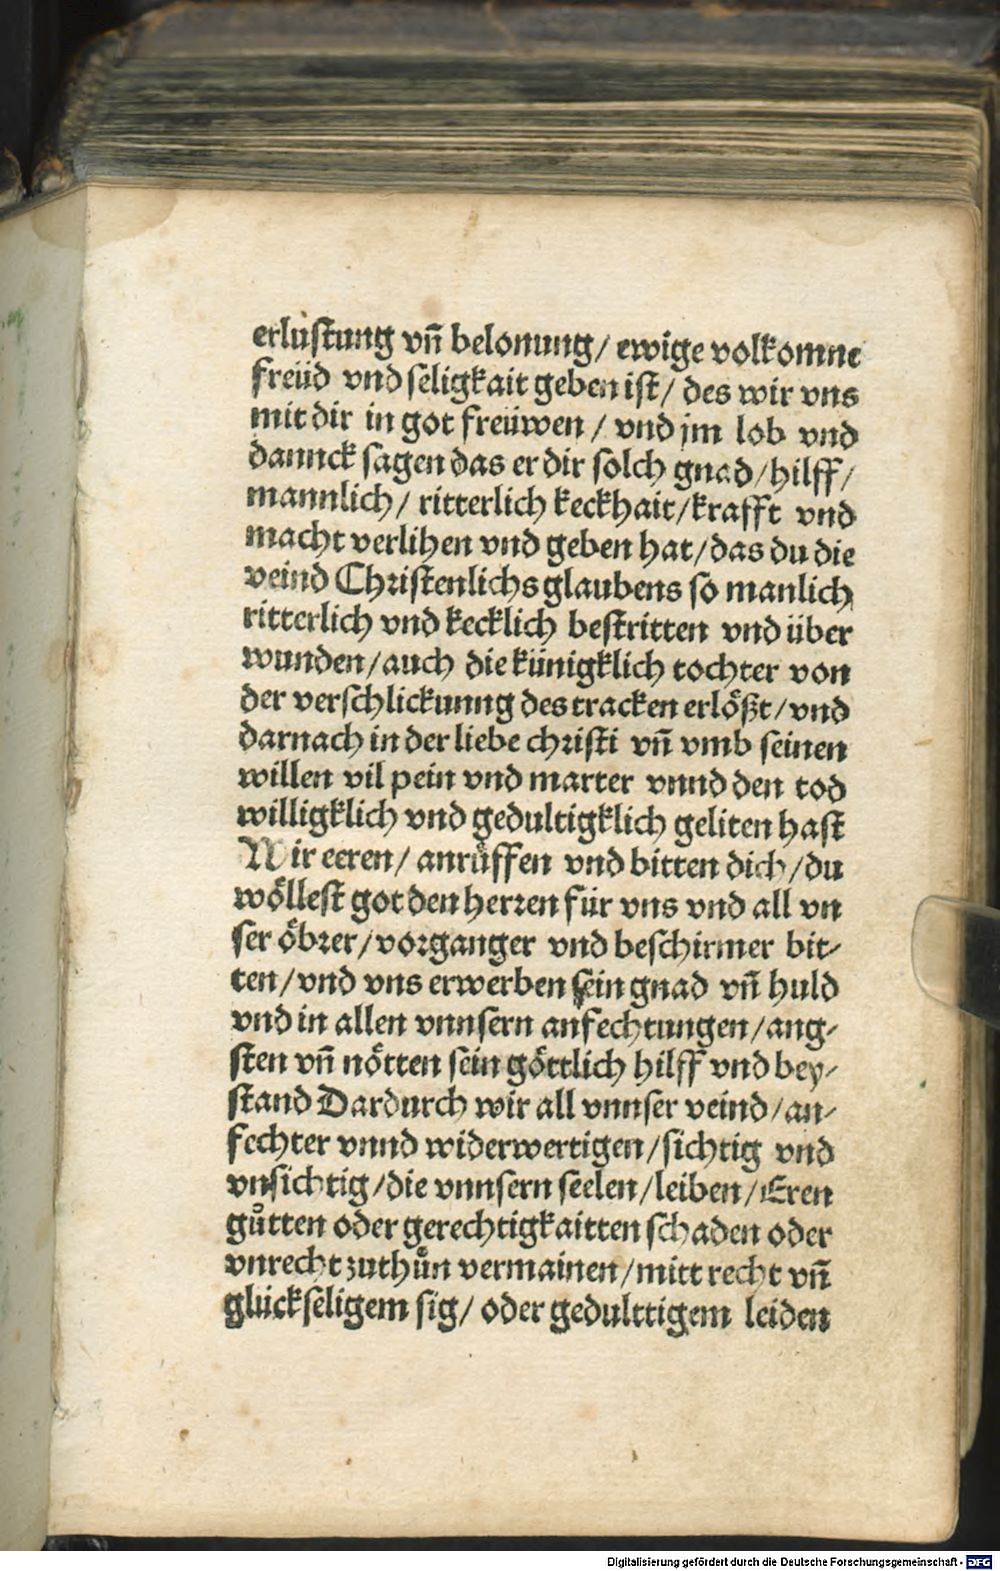 erlustung vñ belonung/ ewige volkomne
freüd vnd seligkait geben ist/ des wir vns
mit dir in got freüwen / vnd jm lob vnd
dannck sagen das er dir solch gnad/hilff/
mannlich/ ritterlich keckhait/krafft vnd
macht verlihen vnd geben hat/das du die
veind Christenlichs glaubens so manlich
ritterlich vnd kecklich bestritten vnd über
wunden/auch die künigklich tochter von
der verschlickunng des tracken erlößt/vnd
darnach in der liebe christi vñ vmb seinen
willen vil pein vnd marter vnnd den tod
willigklich vnd gedultigklich geliten hast
Wir eeren/ anrůffen vnd bitten dich/du
wöllest got den herren für vns vnd all vn
ser öbrer/vorganger vnd beschirmer bit-
ten/vnd vns erwerben sein gnad vñ huld
vnd in allen vnnsern anfechtungen/ang-
sten vñ nötten sein göttlich hilff vnd bey-
stand Dardurch wir all vnnser veind/an-
fechter vnnd widerwertigen/sichtig vnd
vnsichtig/die vnnsern seelen/leiben/Eren
gůtten oder gerechtigkaitten schaden oder
vnrecht zuthůn vermainen/mitt recht vñ
glückseligem sig/ oder gedulttigem leiden
Digitalisierung gefördert durch die Deutsche Forschungsgemeinschaft - DFG